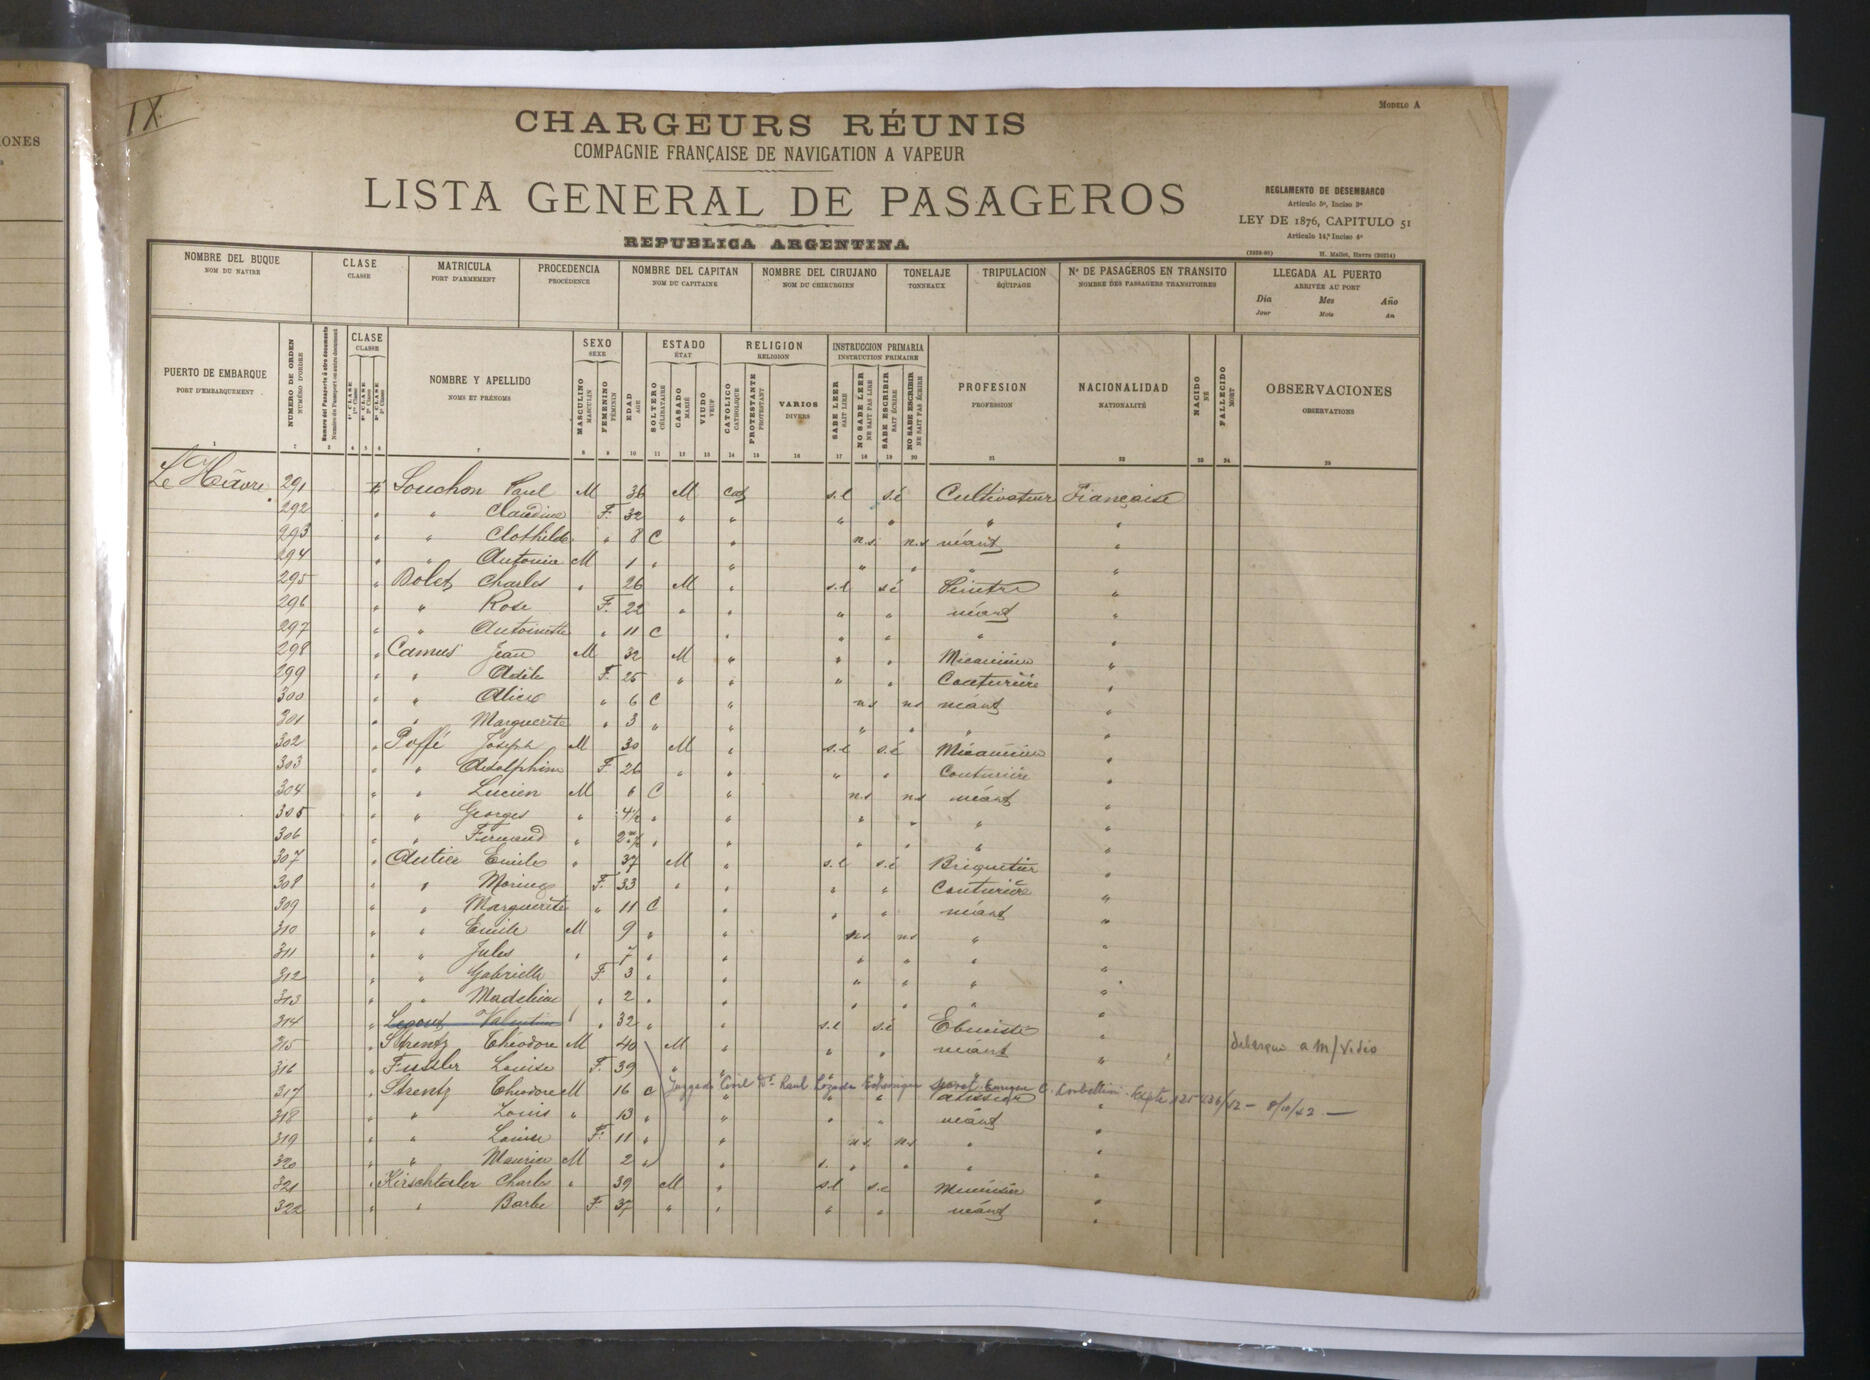 IONES
IX.
MODELO A
CHARGEURS RÉUNIS
COMPAGNIE FRANÇAISE DE NAVIGATION A VAPEUR
LISTA GENERAL DE PASAGEROS
REGLAMENTO DE DESEMBARCO
Articulo 5º, Inciso 3º
LEY DE 1876, CAPITULO 51
Articulo 14,º Inciso 4º
REPUBLICA ARGENTINA
H. Mallet, Havre (20214)
NOMBRE DEL BUQUE CLASE MATRICULA PROCEDENCIA NOMBRE DEL CAPITAN NOMBRE DEL CIRUJANO TONELAJE TRIPULACION Nº DE PASAGEROS EN TRANSITO LLEGADA AL PUERTO
NOM DU NAVIRE CLASSE PORT D'ARMEMENT PROCÉDENCE NOM DU CAPITAINE NOM DU CHIRURGIEN TONNEAUX ÉQUIPAGE NOMBRE DES PASSAGERS TRANSITOIRES ARRIVÉE AU PORT
Dia Mes Año
Jour Mois An
PUERTO DE EMBARQUE
PORT D'EMBARQUEMENT
NUMERO DE ORDEN
NUMÉRO D'ORDRE
Numero del Pasaporte ú otro documento
Numéro du Passeport ou autre document
CLASE
CLASSE
1ª CLASE
1re Classe
2ª CLASE
2e Classe
3ª CLASE
3e Classe
NOMBRE Y APELLIDO
NOMS ET PRÉNOMS
SEXO
SEXE
MASCULINO
MASCULIN
FEMENINO
FÉMININ
EDAD
AGE
ESTADO
ÉTAT
SOLTERO
CÉLIBATAIRE
CASADO
MARIÉ
VIUDO
VEUF
RELIGION
RELIGION
CATOLICO
CATHOLIQUE
PROTESTANTE
PROTESTANT
VARIOS
DIVERS
INSTRUCCION PRIMARIA
INSTRUCTION PRIMAIRE
SABE LEER
SAIT LIRE
NO SABE LEER
NE SAIT PAS LIRE
SABE ESCRIBIR
SAIT ÉCRIRE
NO SABE ESCRIBIR
NE SAIT PAS ÉCRIRE
PROFESION
PROFESSION
NACIONALIDAD
NATIONALITÉ
NACIDO
NÉ
FALLECIDO
MORT
OBSERVACIONES
OBSERVATIONS
1 2 3 4 5 6 7 8 9 10 11 12 13 14 15 16 17 18 19 20 21 22 23 24 25
Le Hâvre 291 Souchon Paul M 36 M Cat s.l s.é Cultivateur Française
292 " " Claudine F. 32 " " " " " "
293 " " Clothilde " 8 C " n.s. n.s néant "
294 " " Antoine M 1 " " " " " "
295 " Bolet Charles " 26 M " s.l s.é Peintre "
296 " " Rose F. 22 " " " " néant "
297 " " Antoinette " 11 C " " " " "
298 " Camus Jean M 32 M " " " Mécanicien "
299 " " Adèle F. 25 " " " " Couturière "
300 " " Alice " 6 C " ns ns néant "
301 " " Marguerite " 3 " " " " " "
302 " Poffé Joseph M 30 M " s.l s.é Mécanicien "
303 " " Adolphine F. 26 " " " " Couturière "
304 " " Lucien M 6 C " n.s n.s néant "
305 " " Georges " 4½ " " " " " "
306 " " Fernand " " " " " " "
307 " Autier Emile " 37 M " s.l s.é Briquetier "
308 " " F. 33 " " " " Couturière "
309 " " Marguerite " 11 C " " " néant "
310 " " Emile M 9 " " ns ns " "
311 " " Jules " " " " " " "
312 " " Gabrielle F. 3 " " " " " "
313 " " Madeleine " 2 " " " " " "
314 " Legout Valentine " 32 " " s.l s.é Ebeniste "
315 " Strentz Théodore M 40 M " " " néant " debarque a M/Video
316 " Fussler Louise F. 39 " " " " " "
317 " Strentz Théodore M 16 C " " " Patissier "
Juzgado Civil Dr. Raul Lozada Echenique Secret. Enrique C. Corbellini 8/10/42 —
318 " " Louis " 13 " " " " néant "
319 " " Louise F. 11 " " ns ns " "
320 " " Maurice M 2 " " " " " "
321 " Kirschtaler Charles " 39 M " s.l s.é Menuisier "
322 " " Barbe F. 37 " " " " néant "